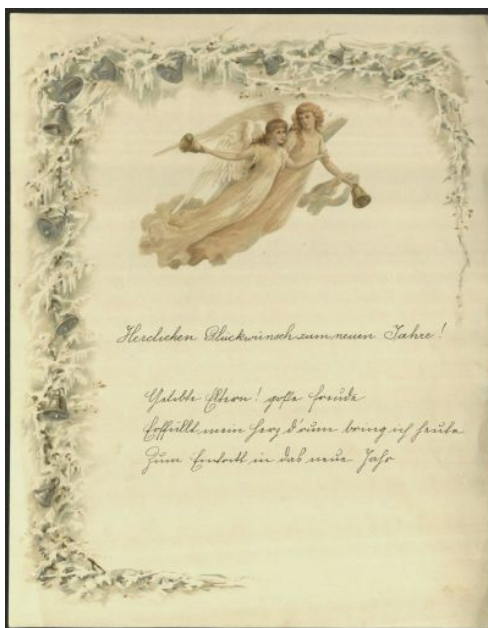 Herclichen Glückwunsch zum neuen Jahre!
Geliebte Eltern! große Freude
Erffüllt mein Herz d'rum bring ich heute
Zum Eintritt in das neue Jahr